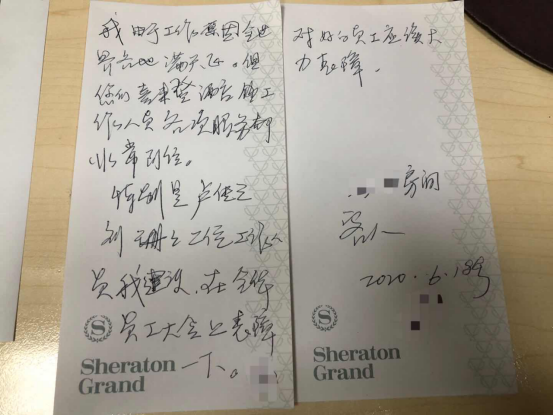 我由于工作原因全世
界各地满天飞。但
您们喜来登酒店的工
作人员各项服务都
非常到位。
特别是卢佳
刘 二位工作人
员我建议,在全体
员工大会上表障
一下。
S
Sheraton
Grand
对好的员工应该大
力表障。
房间
客人
2020.6.18号
S
Sheraton
Grand